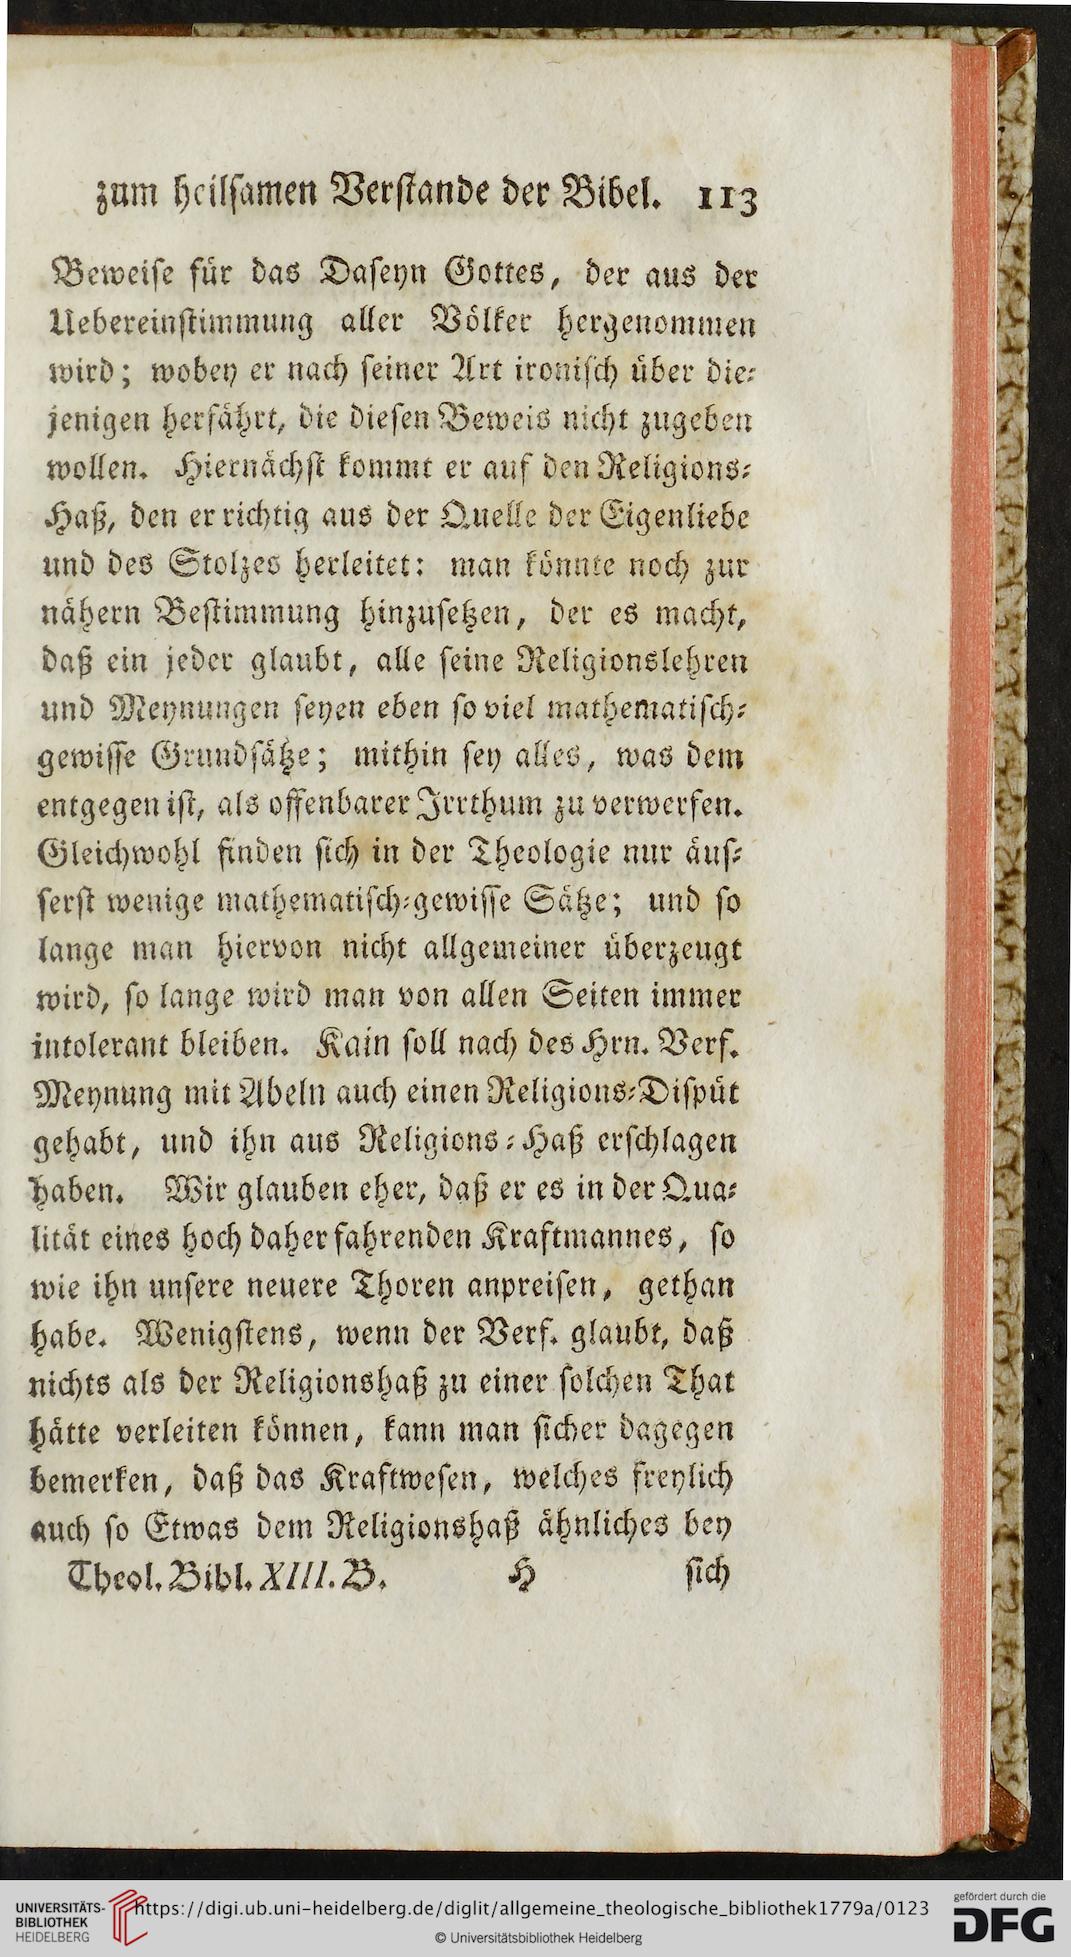 zum heilsamen Verstande der Bibel. 113
Beweise für das Daseyn Gottes, der aus der
Uebereinstimmung aller Völker hergenommen
wird; wobey er nach seiner Art ironisch über die-
jenigen herfährt, die diesen Beweis nicht zugeben
wollen. Hiernächst kommt er auf den Religions-
Haß, den er richtig aus der Quelle der Eigenliebe
und des Stolzes herleitet: man könnte noch zur
nähern Bestimmung hinzusetzen, der es macht,
daß ein jeder glaubt, alle seine Religionslehren
und Meynungen seyen eben so viel mathematisch-
gewisse Grundsätze; mithin sey alles, was dem
entgegen ist, als offenbarer Irrthum zu verwerfen.
Gleichwohl finden sich in der Theologie nur äus-
serst wenige mathematisch-gewisse Sätze; und so
lange man hiervon nicht allgemeiner überzeugt
wird, so lange wird man von allen Seiten immer
intolerant bleiben. Kain soll nach des Hrn. Verf.
Meynung mit Abeln auch einen Religions-Dispüt
gehabt, und ihn aus Religions-Haß erschlagen
haben. Wir glauben eher, daß er es in der Qua-
lität eines hoch daher fahrenden Kraftmannes, so
wie ihn unsere neuere Thoren anpreisen, gethan
habe. Wenigstens, wenn der Verf. glaubt, daß
nichts als der Religionshaß zu einer solchen That
hätte verleiten können, kann man sicher dagegen
bemerken, daß das Kraftwesen, welches freylich
auch so Etwas dem Religionshaß ähnliches bey
Theol. Bibl. XIII. B. H sich
UNIVERSITÄTS-
BIBLIOTHEK
HEIDELBERG
https://digi.ub.uni-heidelberg.de/diglit/allgemeine_theologische_bibliothek1779a/0123
© Universitätsbibliothek Heidelberg
gefördert durch die
DFG